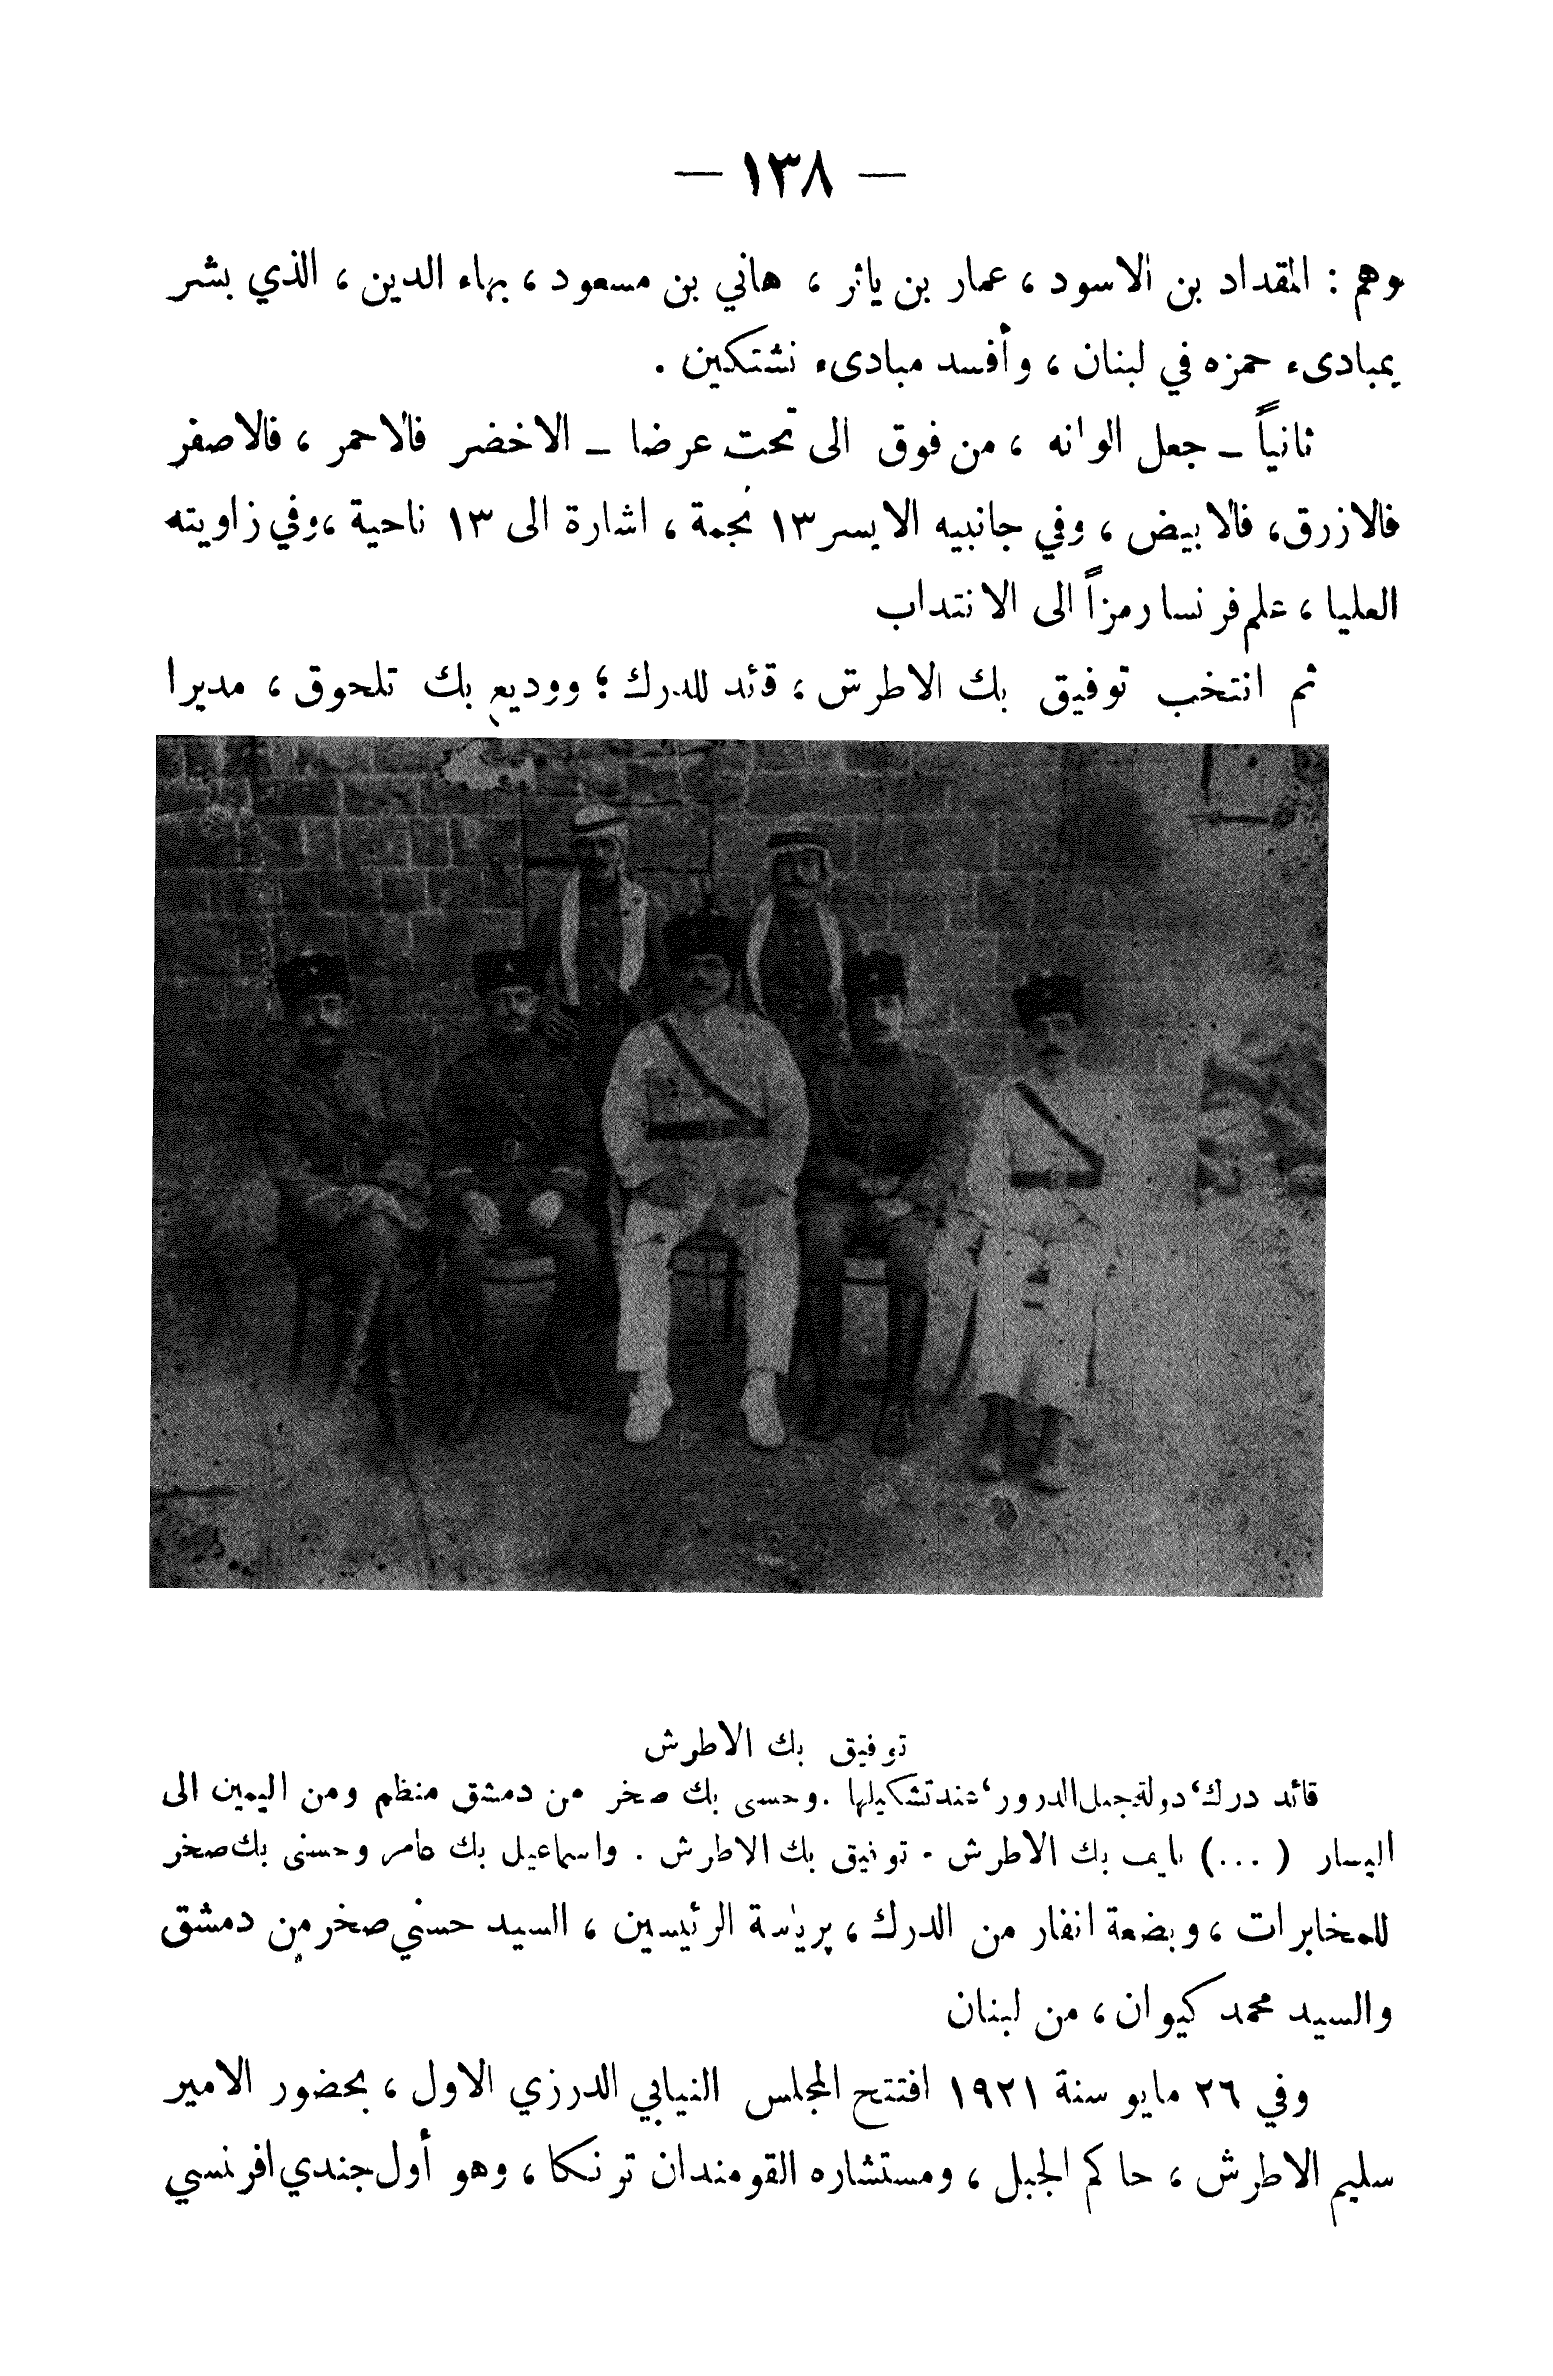 — ١٣٨ —
وهم : المقداد بن الاسود ، عمار بن ياثر ، هاني بن مسعود ، بهاء الدين ، الذي بشر
بمبادىء حمزه في لبنان ، وأفسد مبادىء نشتكين .
ثانياً ـ جعل الوانه ، من فوق الى تحت عرضا ـ الاخضر فالاحمر ، فالاصفر
فالازرق، فالابيض ، وفي جانبيه الايسر ١٣ نجمة ، اشارة الى ١٣ ناحية ، وفي زاويته
العليا ، علم فرنسا رمزاً الى الانتداب
ثم انتخب توفيق بك الاطرش ، قائد للدرك ؛ ووديع بك تلحوق ، مديرا
توفيق بك الاطرش
قائد درك ، دولة جبل الدروز ، عند تشكيلها . وحسني بك صخر من دمشق منظم ومن اليمين الى
اليسار ( ... ) نايف بك الاطرش . توفيق بك الاطرش . واسماعيل بك عامر وحسنى بك صخر
للمخابرات ، وبضعة انفار من الدرك ، برياسة الرئيسين ، السيد حسني صخر من دمشق
والسيد محمد كيوان ، من لبنان
وفي ٢٦ مايو سنة ١٩٢١ افتتح المجلس النيابي الدرزي الاول ، بحضور الامير
سليم الاطرش ، حاكم الجبل ، ومستشاره القومندان ترنكا ، وهو أول جندي افرنسي